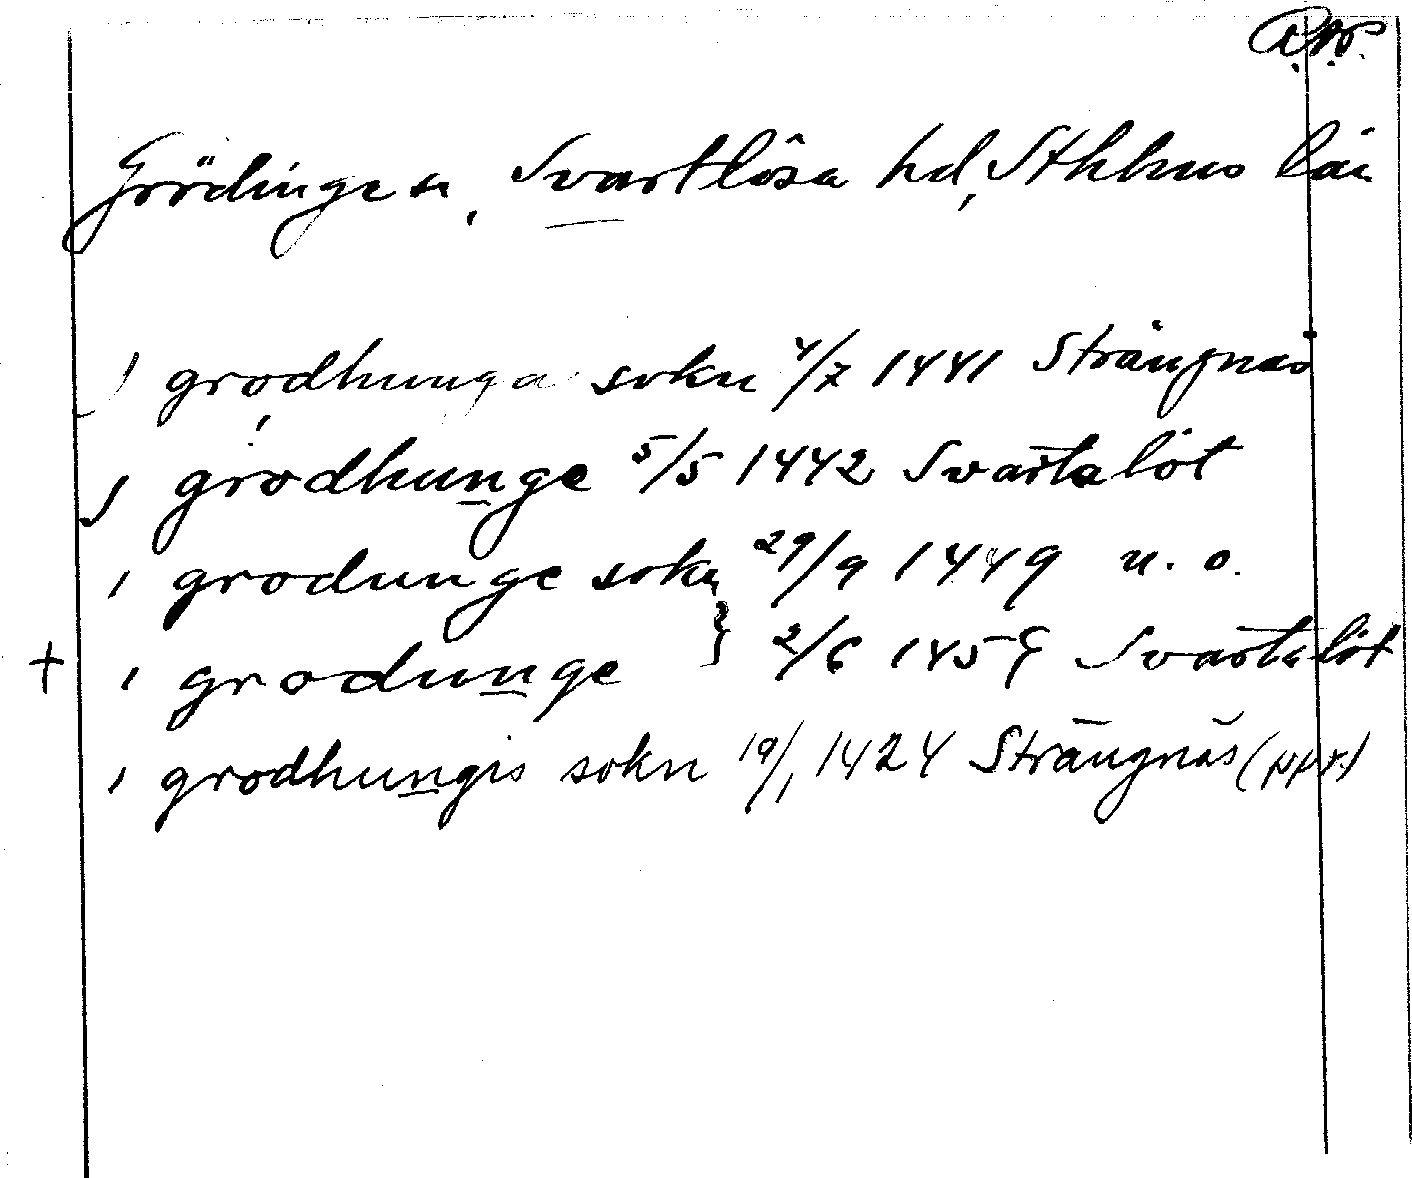 Grödinge sn, Svartlösa hd, Sthlms län
i grodhunga sokn 4/7 1441 Strängnäs
j grodhunge 5/5 1442 Svartalöt
i grodunge sokn 29/9 1449 u. o.
+ i grodunge } 2/6 1459 Svartalöt
i grodhungis sokn 19/1 1424 Strängnäs (ppr)